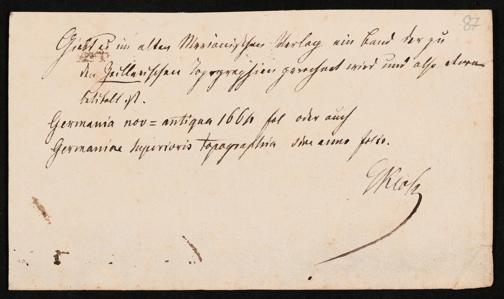 87
Giebt es im alten Merianischen Verlag ein Band der zu
den Zeillerischen Topographien gerechnet wird und also etwa
betitelt ist.
Germania nov= antiqua 1664 fol oder auch
Germaniae Superioris topographia sine anno folio.
Kloß